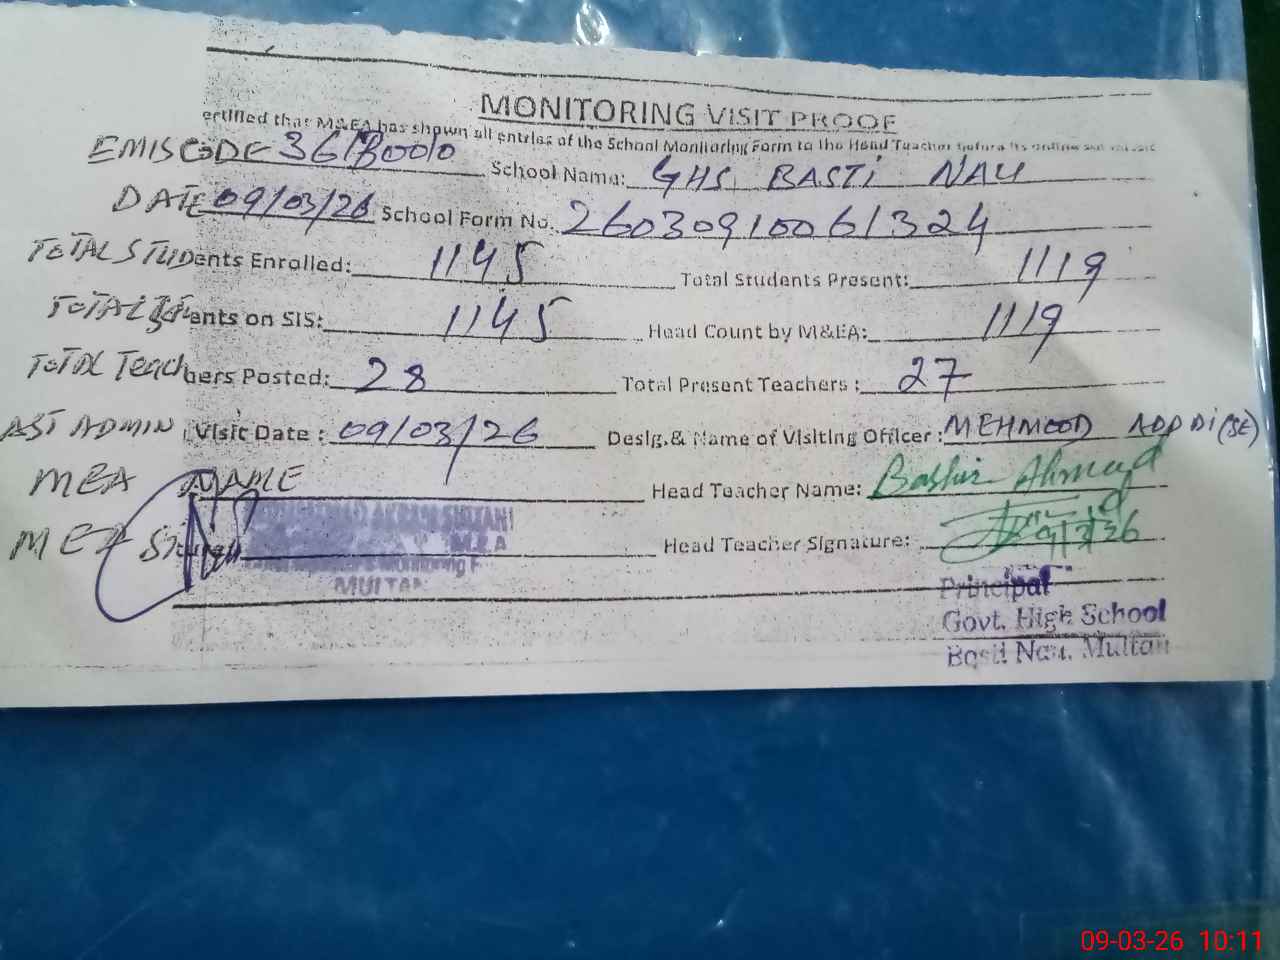 MONITORING VISIT PROOF
ertified that M&EA has shown all entries of the School Monitoring Form to the Head Teacher before its online
EMISCODE School Name: GHS BASTi NAU
DATE 09/03/26 School Form No. 26030910061324
TOTAL STUDents Enrolled: 1145 Total Students Present: 1119
TOTAL ents on SIS: 1145 Head Count by M&EA: 1119
TOTAL Teachers Posted: 28 Total Present Teachers: 27
AST ADMIN Visit Date: 09/03/26 Desig.& Name of Visiting Officer: MEHMOOD
MEA NAME Head Teacher Name: Bashir Ahmad
MEA Head Teacher Signature: 9/3/26
M.E.A
MULTAN
Principal
Govt. High School
Basti Nau, Multan
09-03-26 10:11